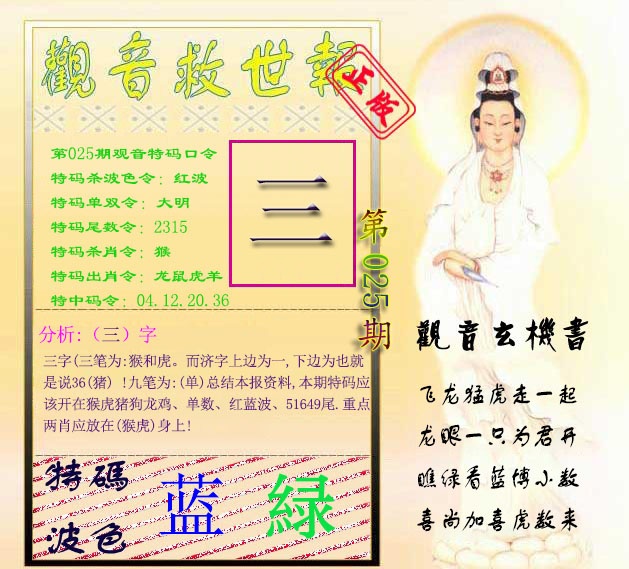 觀音救世報
正版
第025期观音特码口令
特码杀波色令: 红波
特码单双令: 大明
特码尾数令: 2315
特码杀肖令: 猴
特码出肖令: 龙鼠虎羊
特中码令: 04.12.20.36
三
第025期
分析:（三）字
三字(三笔为:猴和虎。而济字上边为一,下边为也就
是说36(猪) !九笔为:(单)总结本报资料,本期特码应
该开在猴虎猪狗龙鸡、单数、红蓝波、51649尾.重点
两肖应放在(猴虎)身上!
特碼
波色
蓝 緑
觀音玄機書
飞龙猛虎走一起
龙眼一只为君开
瞧绿看蓝博小数
喜尚加喜虎数来